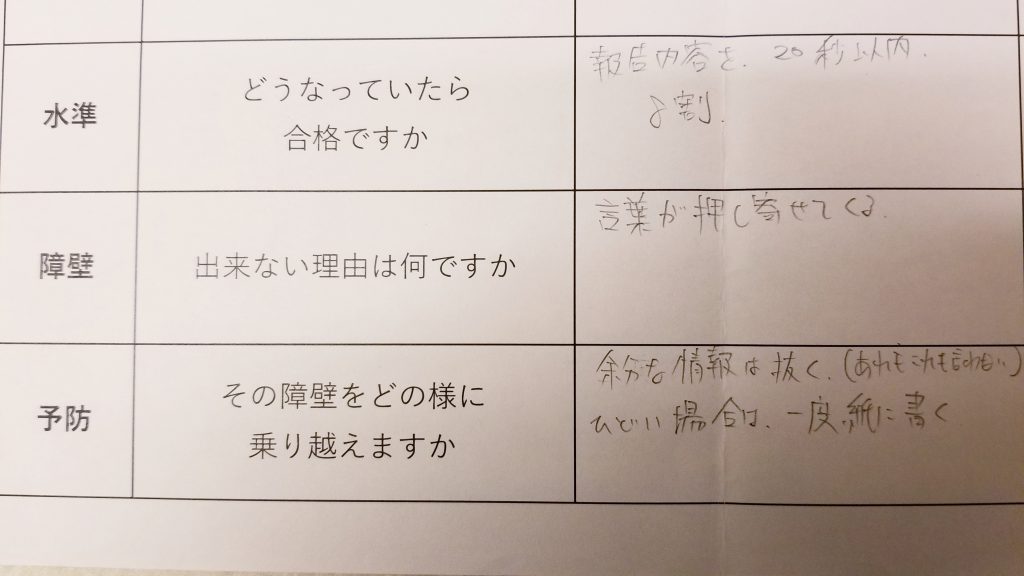 水準
どうなっていたら
合格ですか
報告内容を、20秒以内、
8割、
障壁
出来ない理由は何ですか
言葉が押し寄せてくる。
予防
その障壁をどの様に
乗り越えますか
余分な情報は抜く、(あれもこれも言わない)
ひどい場合は、一度紙に書く